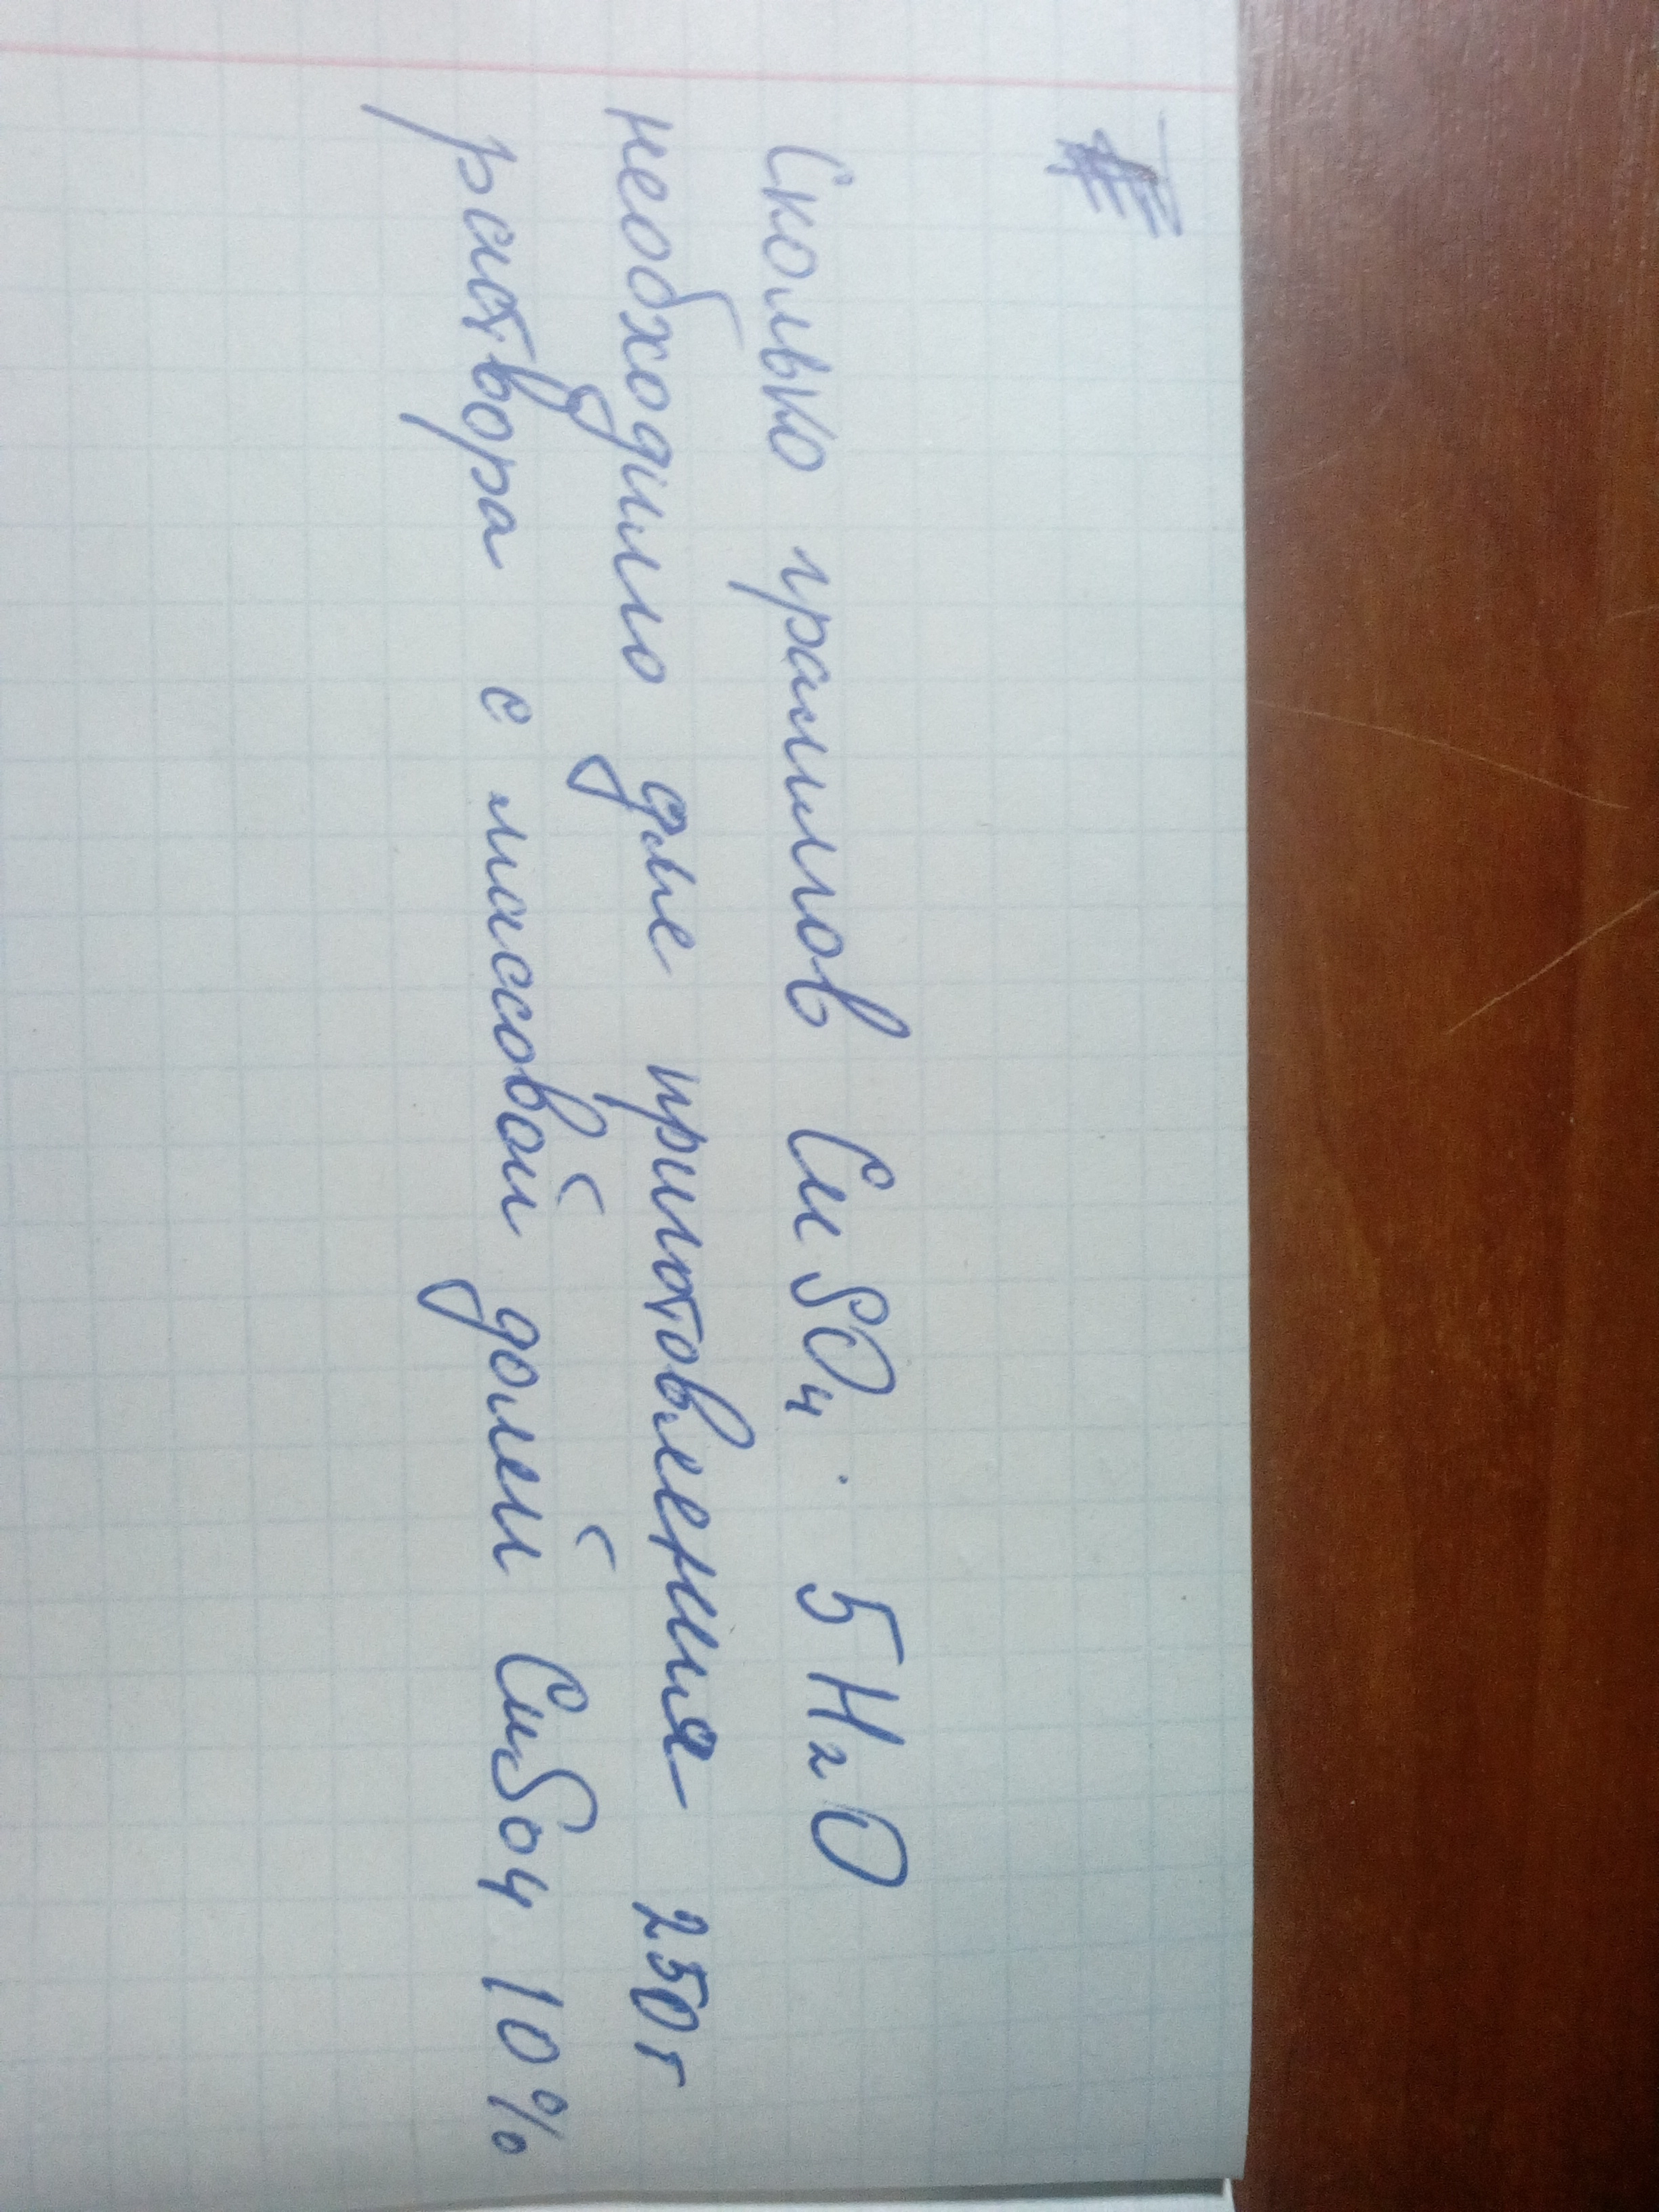 Сколько граммов CuSO₄ · 5H₂O
необходимо дле приготовления 250 г
раствора с массовой долей CuSO4 10%